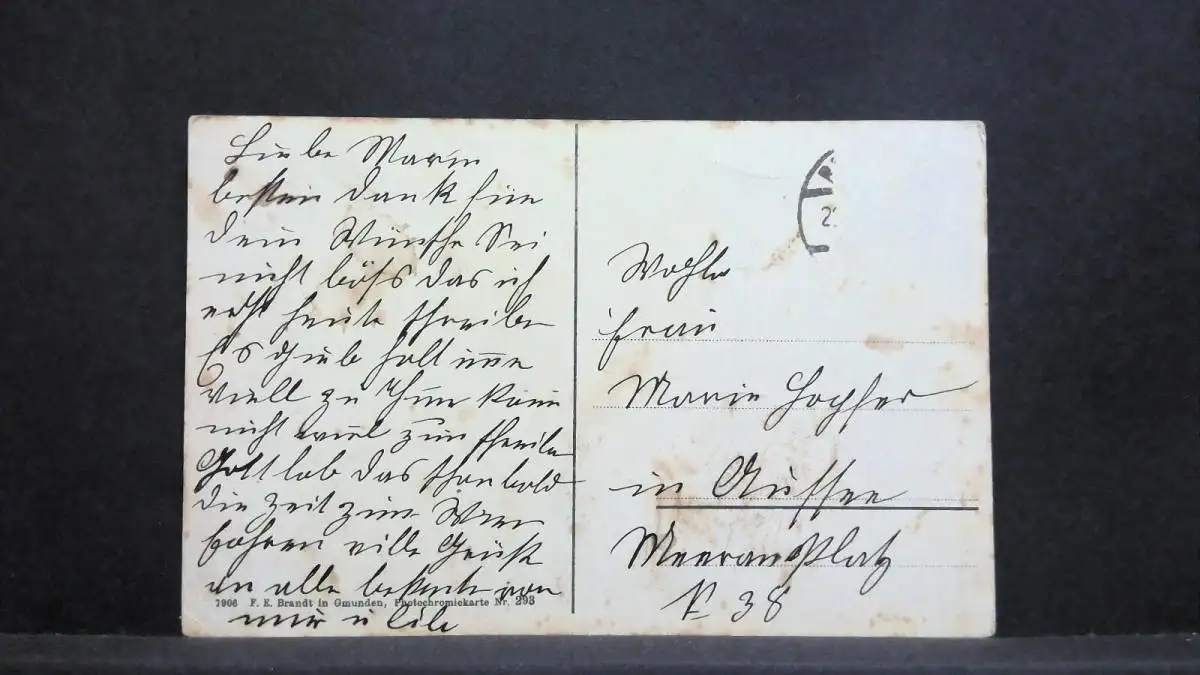 Liebe Marie
besten Dank für
dein Wünsche Sei
nicht böß das ich
erst heute schreibe
Es gieb halt imme
viell zu Thun kome
nicht viel zum schreibe
Gott lob das schon bald
die Zeit zum Wien
fahren ville Grüße
an alle besonders von
mir u
1906 F. E. Brandt in Gmunden, Photochromiekarte Nr. 293
2
Wohlg
Frau
Marie Hopfer
in Aussee
Meeranplatz
N 38